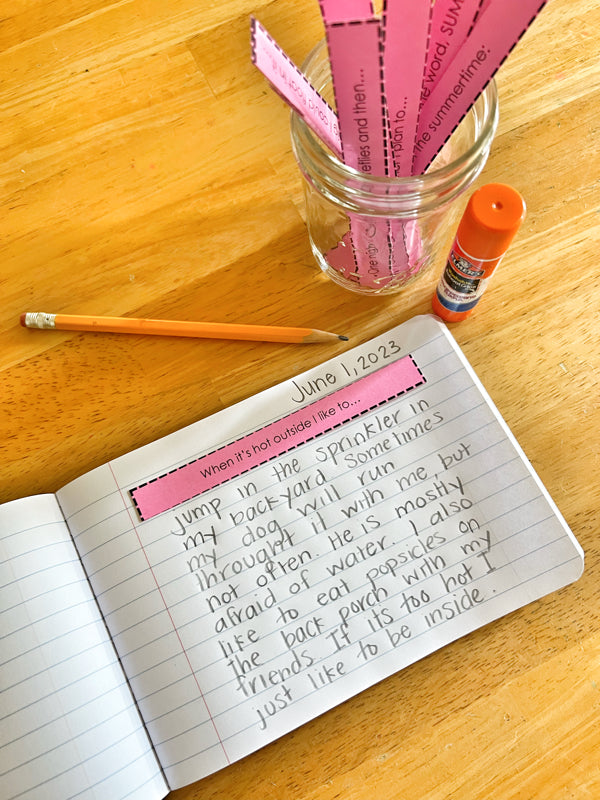 the word, SUM
the summertime:
eflies and then...
I plan to...
One night
Elmer's
June 1, 2023
When it's hot outside I like to...
jump in the sprinkler in
my backyard Sometimes
my dog will run
throught it with me but
not often. He is mostly
afraid of water. I also
like to eat popsicles on
the back porch with my
friends. If it's too hot I
just like to be inside.